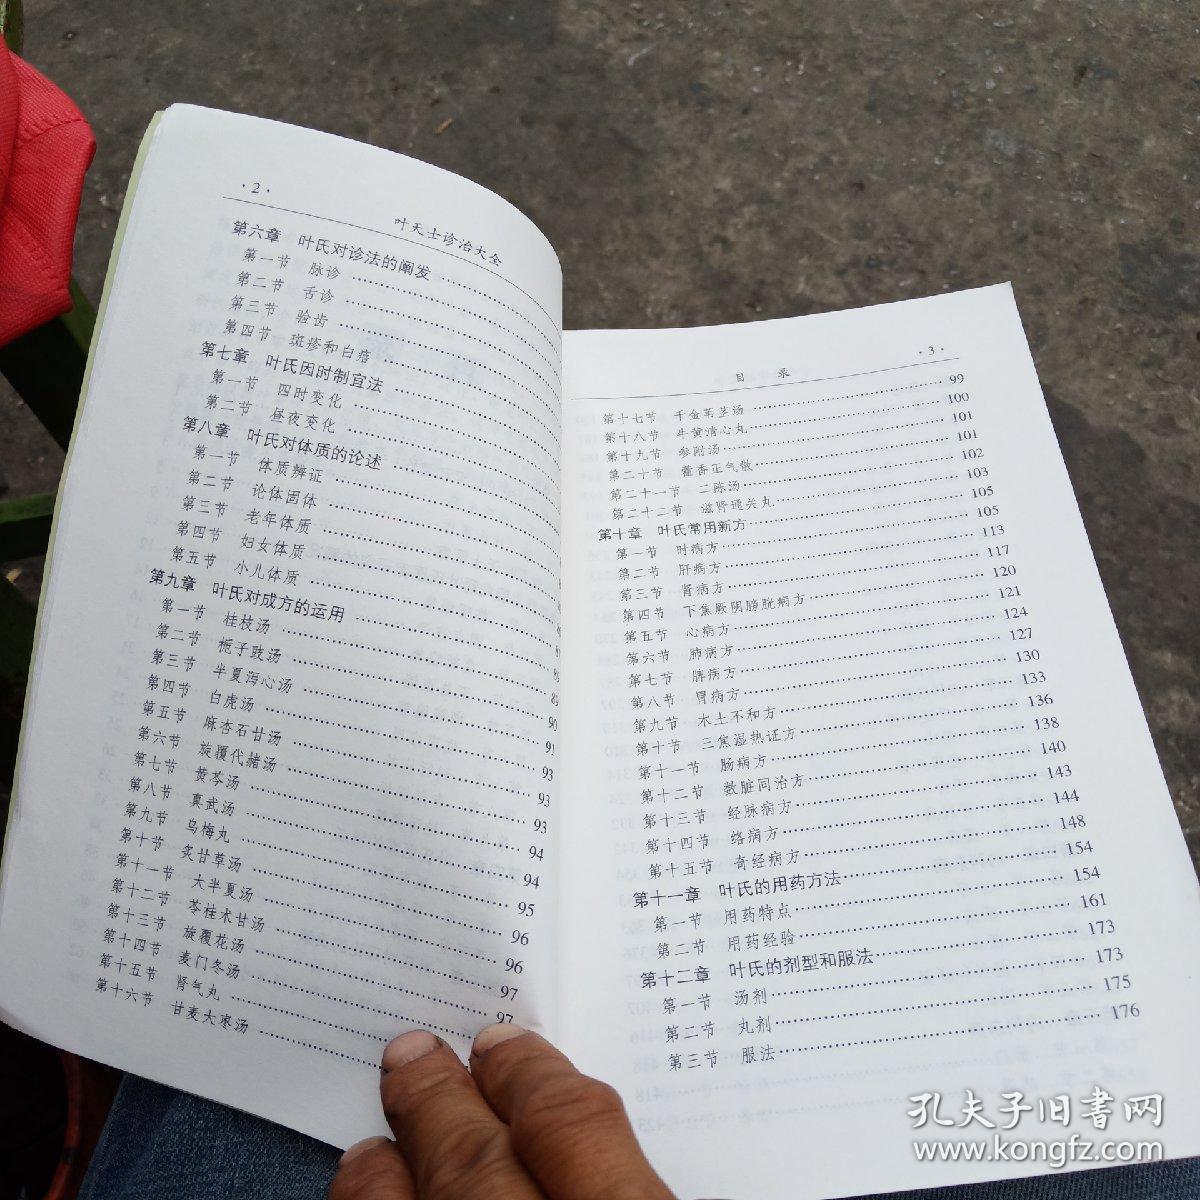 ·2·
叶天士诊治大全
第六章 叶氏对诊法的阐发
第一节 脉诊
第二节 舌诊
第三节 验齿
第四节 斑疹和白㾦
第七章 叶氏因时制宜法
第一节 四时变化
第二节 昼夜变化
第八章 叶氏对体质的论述
第一节 体质辨证
第二节 论体固体
第三节 老年体质
第四节 妇女体质
第五节 小儿体质
第九章 叶氏对成方的运用
第一节 桂枝汤
第二节 栀子豉汤
第三节 半夏泻心汤 89
第四节 白虎汤 90
第五节 麻杏石甘汤 91
第六节 旋覆代赭汤 93
第七节 黄芩汤 93
第八节 真武汤 93
第九节 乌梅丸 94
第十节 炙甘草汤 94
第十一节 大半夏汤 95
第十二节 苓桂术甘汤 96
第十三节 旋覆花汤 96
第十四节 麦门冬汤 97
第十五节 肾气丸 97
第十六节 甘麦大枣汤
目录 ·3·
第十七节 千金苇茎汤 99
第十八节 牛黄清心丸 100
第十九节 参附汤 101
第二十节 藿香正气散 101
第二十一节 二陈汤 102
第二十二节 滋肾通关丸 103
第十章 叶氏常用新方 105
第一节 时病方 105
第二节 肝病方 113
第三节 肾病方 117
第四节 下焦厥阴膀胱病方 120
第五节 心病方 121
第六节 肺病方 124
第七节 脾病方 127
第八节 胃病方 130
第九节 木土不和方 133
第十节 三焦湿热证方 136
第十一节 肠病方 138
第十二节 数脏同治方 140
第十三节 经脉病方 143
第十四节 络病方 144
第十五节 奇经病方 148
第十一章 叶氏的用药方法 154
第一节 用药特点 154
第二节 用药经验 161
第十二章 叶氏的剂型和服法 173
第一节 汤剂 173
第二节 丸剂 175
第三节 服法 176
孔夫子旧书网
www.kongfz.com